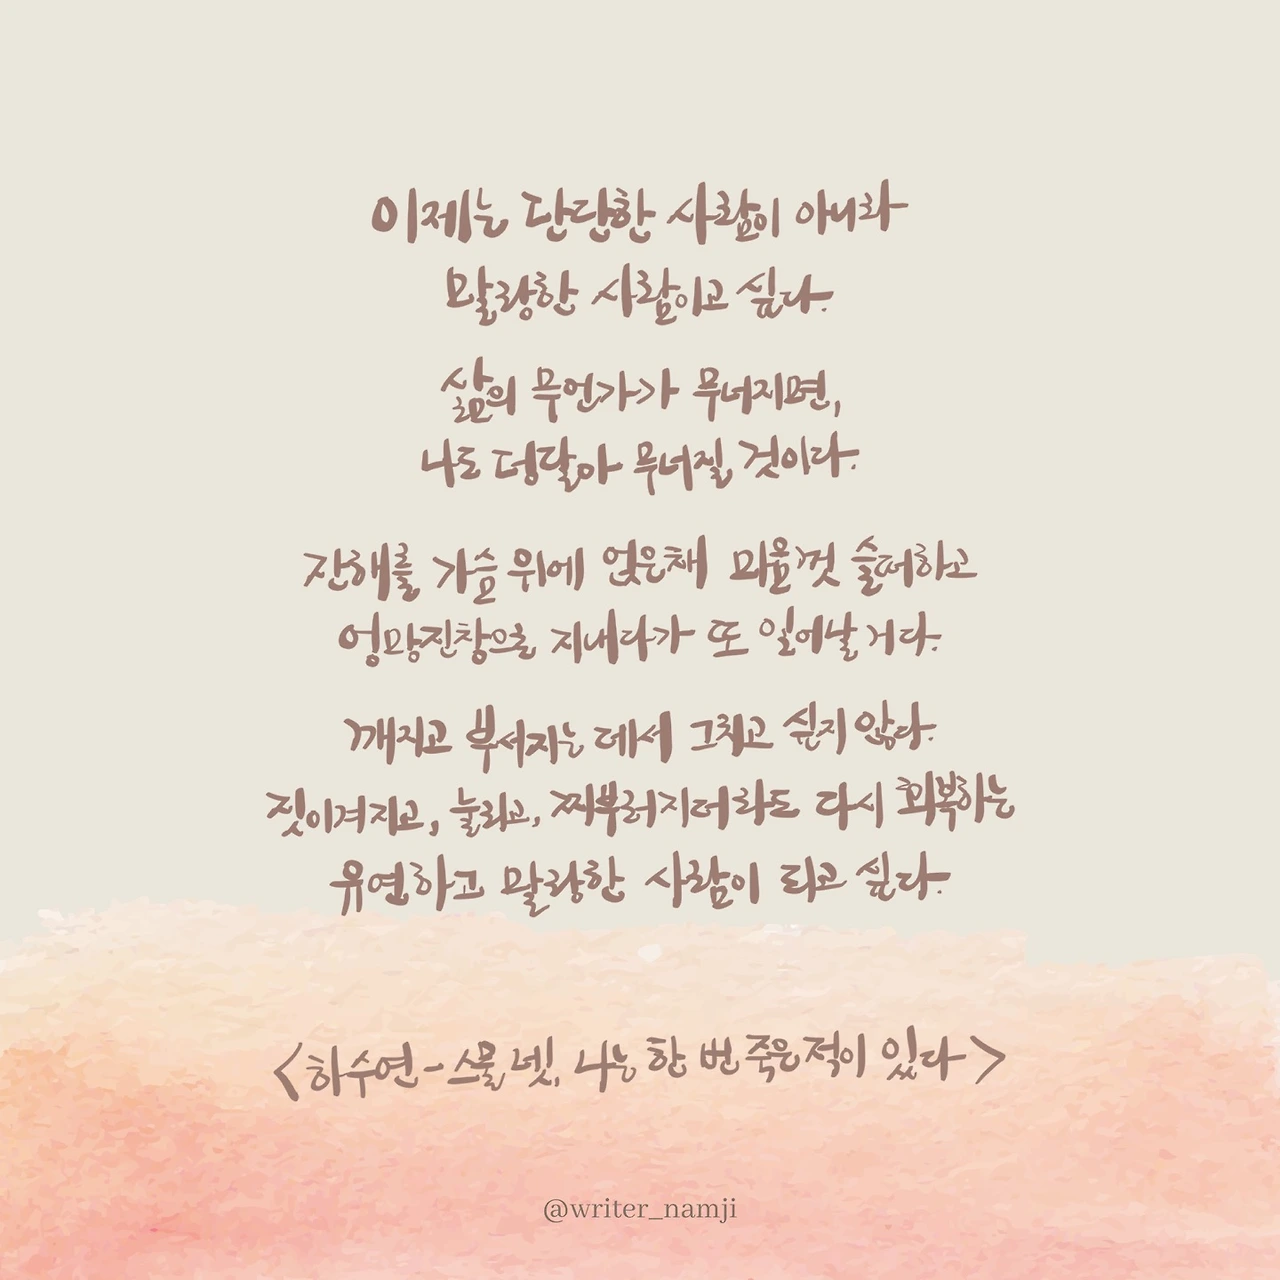 이제는 단단한 사람이 아니라
말랑한 사람이고 싶다.
삶의 무언가가 무너지면,
나도 덩달아 무너질 것이다.
잔해를 가슴 위에 얹은채 마음껏 슬퍼하고
엉망진창으로 지내다가 또 일어날 거다.
깨지고 부서지는 데서 그치고 싶지 않다.
짓이겨지고, 눌리고, 찌부러지더라도 다시 회복하는
유연하고 말랑한 사람이 되고 싶다.
<하수연-스물 넷, 나는 한 번 죽은 적이 있다>
@writer_namji